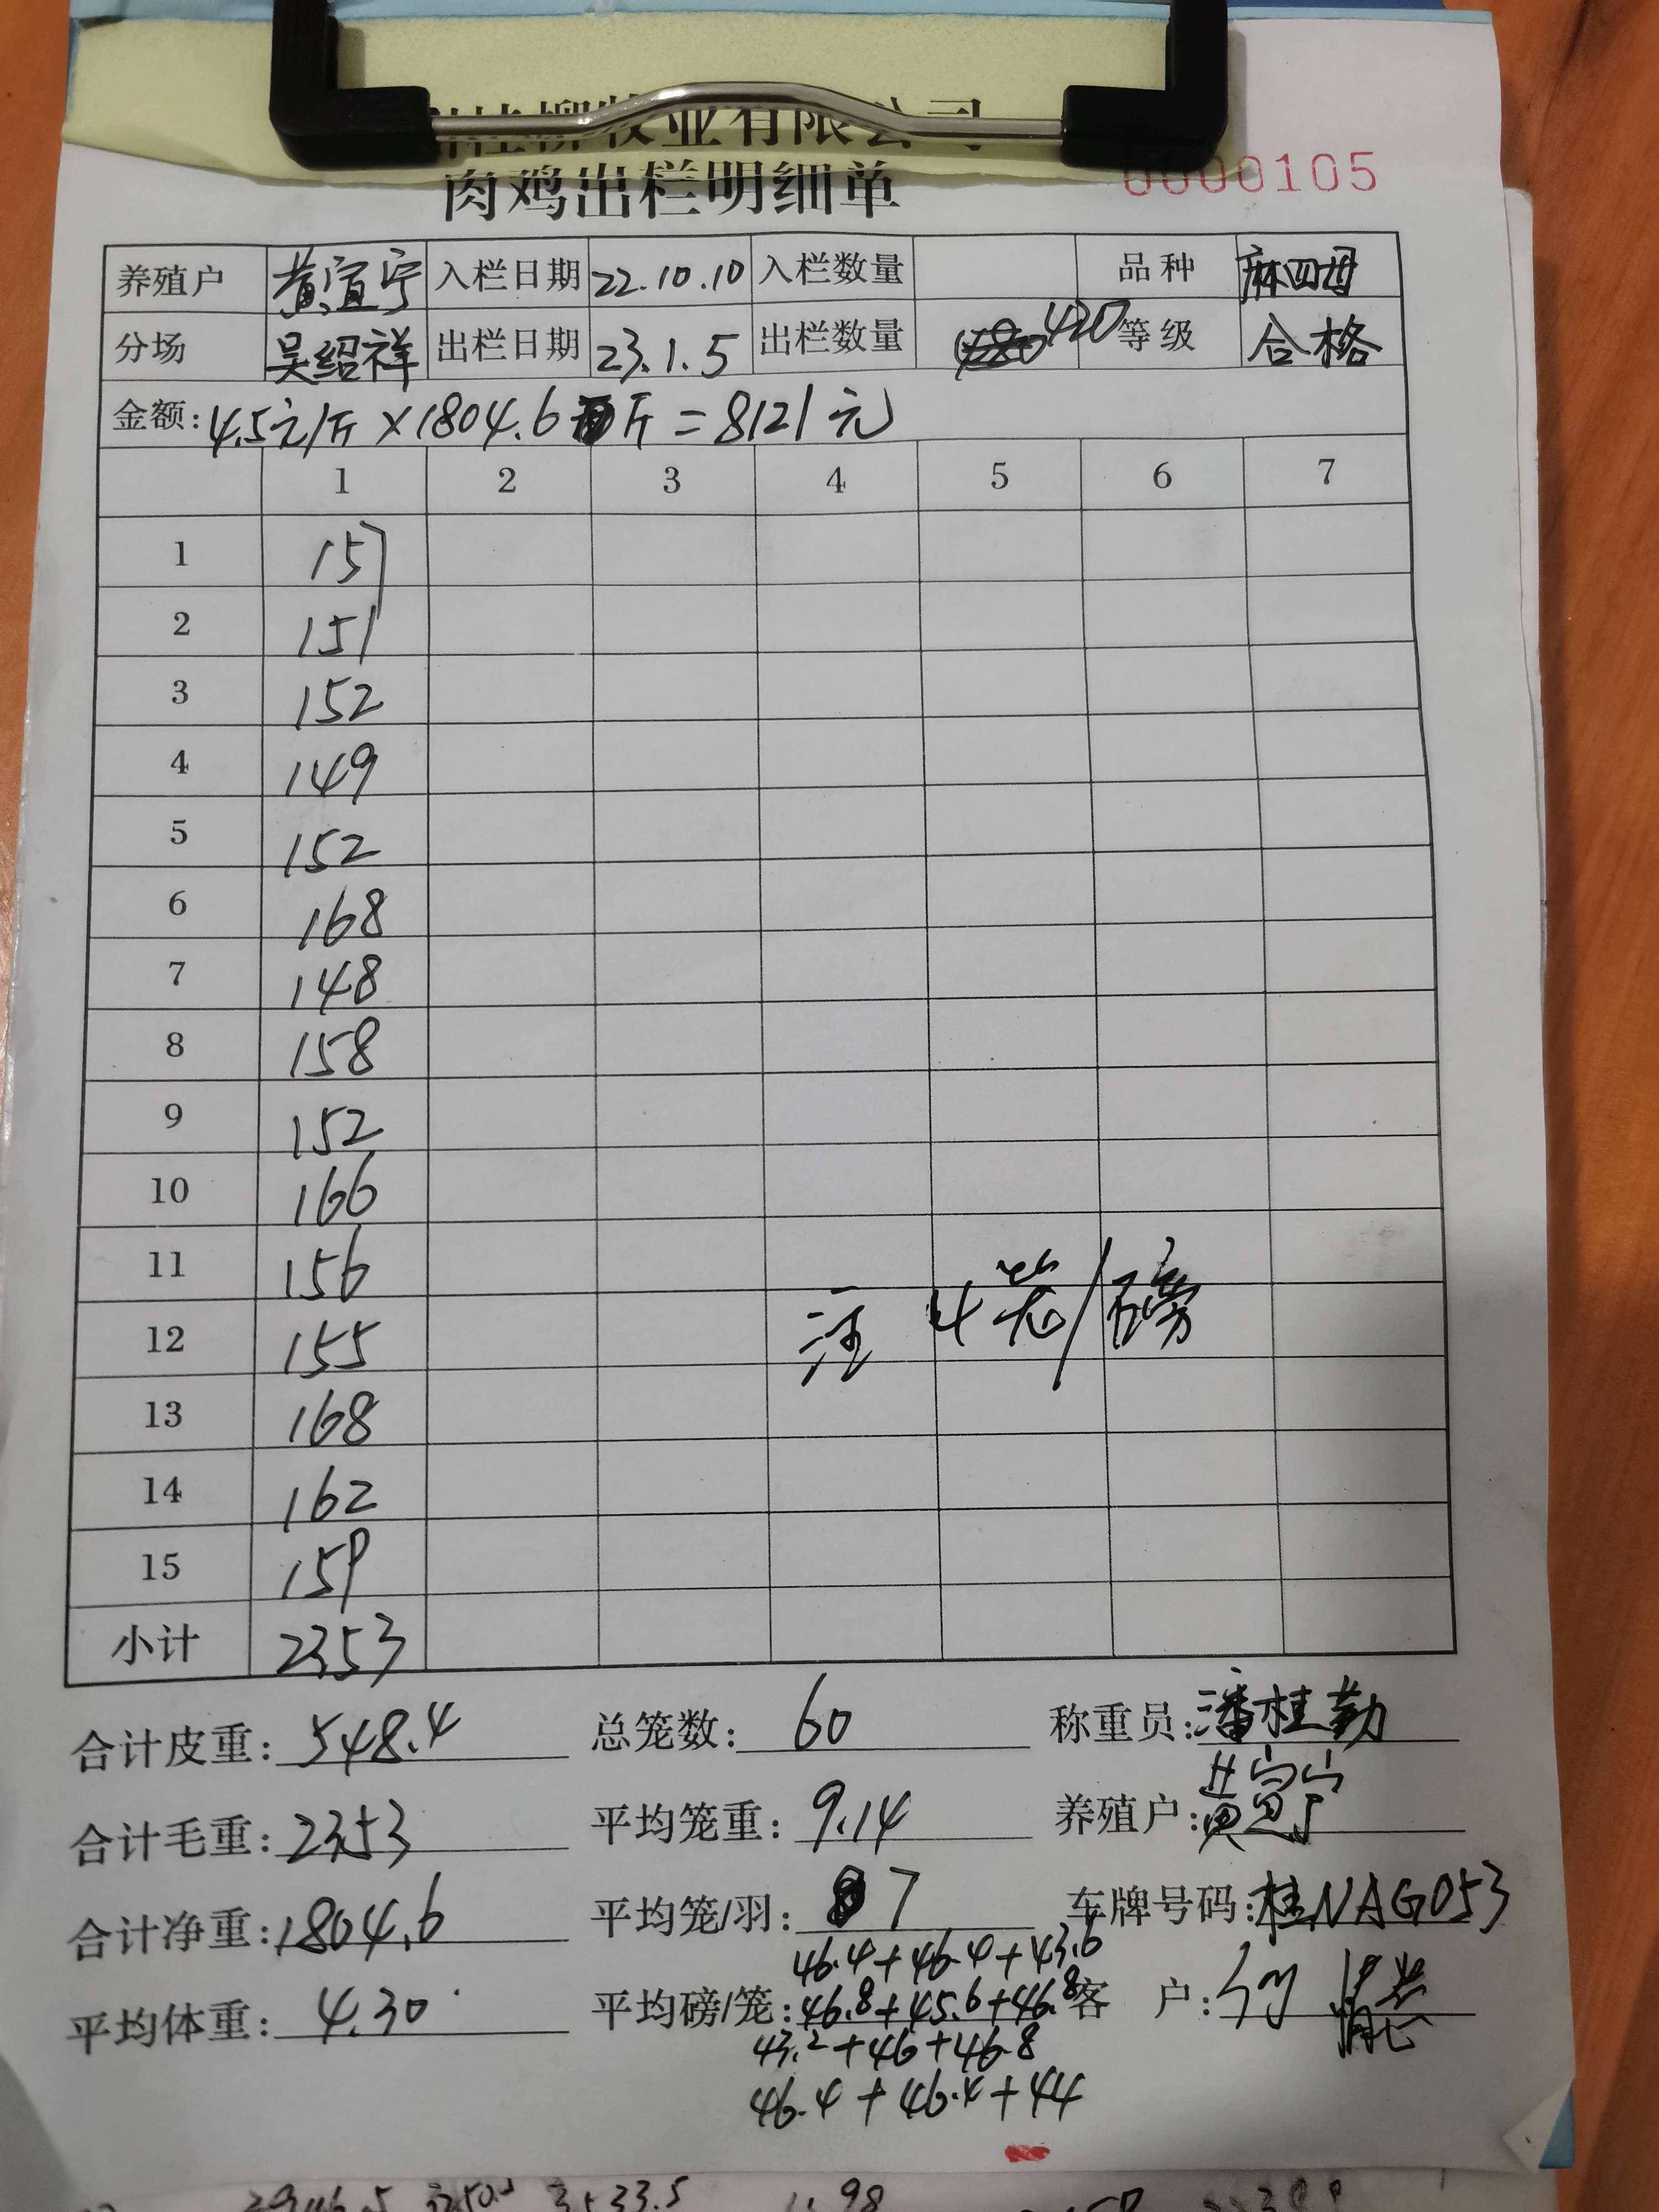 牧业有限公司
肉鸡出栏明细单 0000105
养殖户 黄宣宁 入栏日期 22.10.10 入栏数量 品种 麻四母
分场 吴绍祥 出栏日期 23.1.5 出栏数量 420 等级 合格
金额: 4.5元/斤×1804.6斤=8121元
1 2 3 4 5 6 7
1 157
2 151
3 152
4 149
5 152
6 168
7 148
8 158
9 152
10 166
11 156
12 155
13 168
14 162
15 159
注 4笼/磅
小计 2353
合计皮重: 548.4 总笼数: 60 称重员: 潘桂勤
合计毛重: 2353 平均笼重: 9.14 养殖户: 黄宣宁
合计净重: 1804.6 平均笼/羽: 7 车牌号码: 桂NAG053
46.4+46.4+43.6
平均体重: 4.30 平均磅/笼: 46.8+45.6+46.8 客户:
43.2+46+46.8
46.4+46.4+44